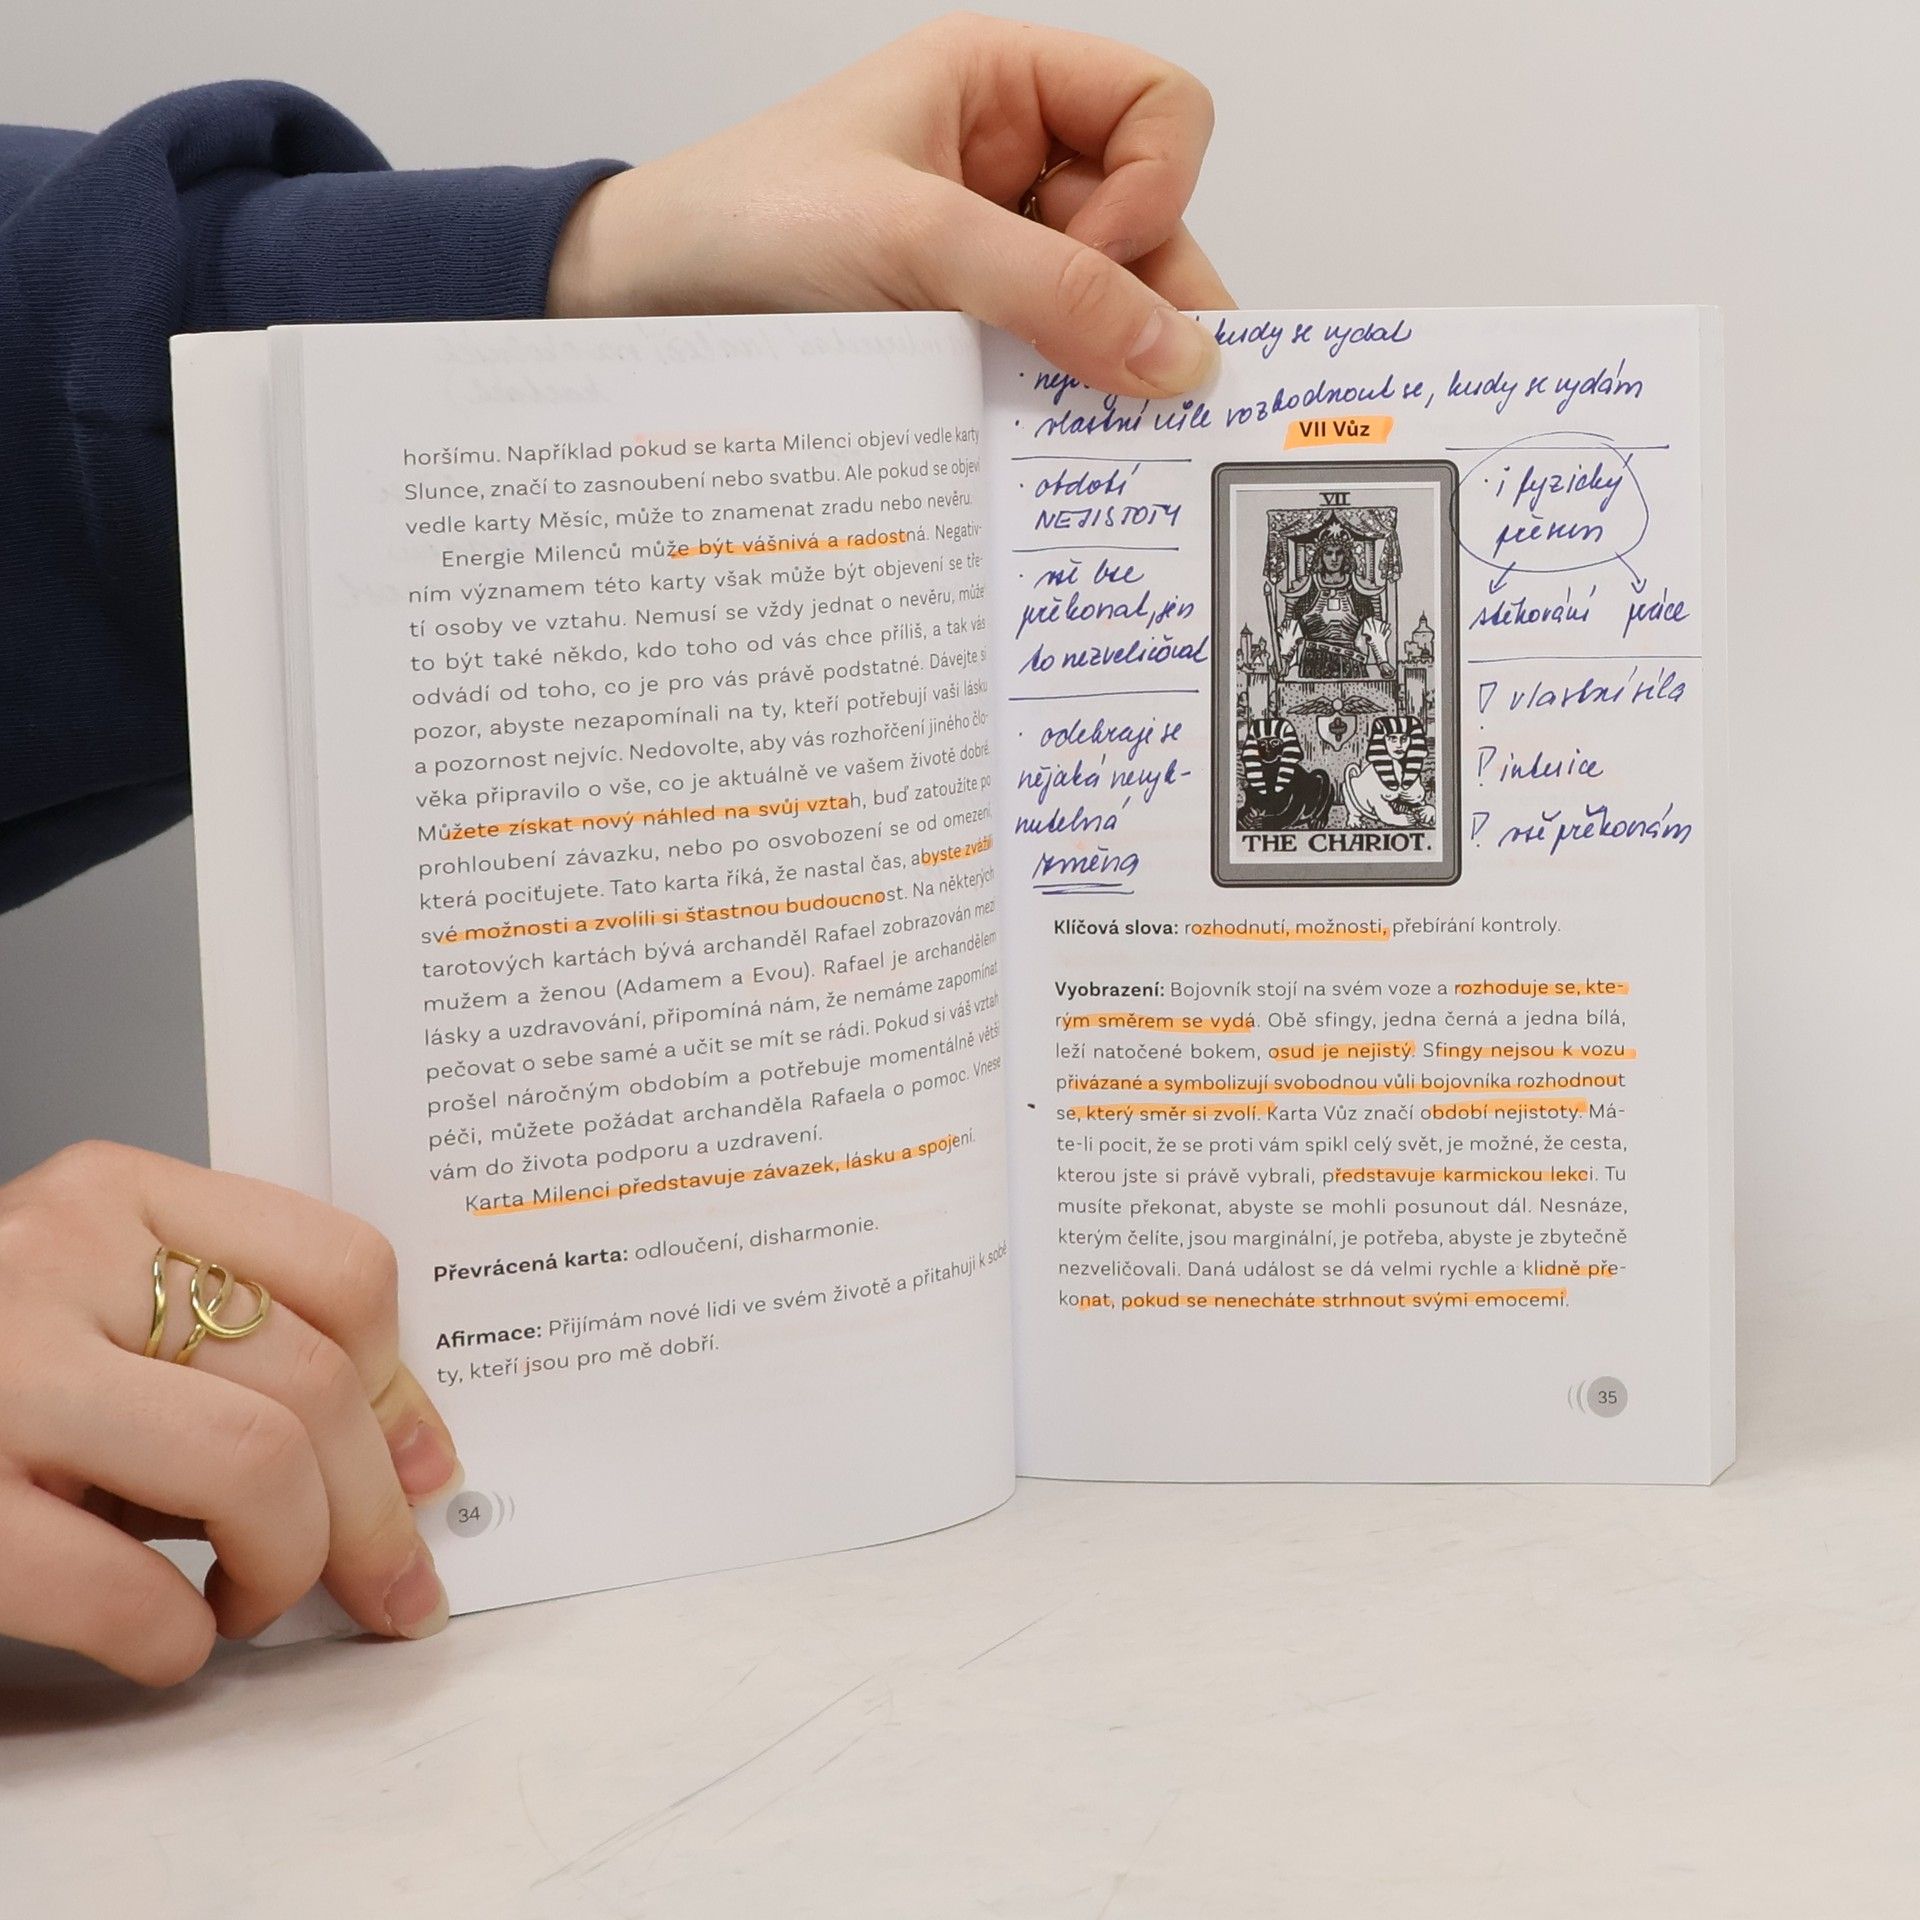 horšímu. Například pokud se karta Milenci objeví vedle karty
Slunce, značí to zasnoubení nebo svatbu. Ale pokud se objeví
vedle karty Měsíc, může to znamenat zradu nebo nevěru.
Energie Milenců může být vášnivá a radostná. Negativ-
ním významem této karty však může být objevení se tře-
tí osoby ve vztahu. Nemusí se vždy jednat o nevěru, může
to být také někdo, kdo toho od vás chce příliš, a tak vás
odvádí od toho, co je pro vás právě podstatné. Dávejte si
pozor, abyste nezapomínali na ty, kteří potřebují vaši lásku
a pozornost nejvíc. Nedovolte, aby vás rozhořčení jiného člo-
věka připravilo o vše, co je aktuálně ve vašem životě dobré.
Můžete získat nový náhled na svůj vztah, buď zatoužíte po
prohloubení závazku, nebo po osvobození se od omezení,
která pociťujete. Tato karta říká, že nastal čas, abyste zvážili
své možnosti a zvolili si šťastnou budoucnost. Na některých
tarotových kartách bývá archanděl Rafael zobrazován mezi
mužem a ženou (Adamem a Evou). Rafael je archandělem
lásky a uzdravování, připomíná nám, že nemáme zapomínat
pečovat o sebe samé a učit se mít se rádi. Pokud si váš vztah
prošel náročným obdobím a potřebuje momentálně větší
péči, můžete požádat archanděla Rafaela o pomoc. Vnese
vám do života podporu a uzdravení.
Karta Milenci představuje závazek, lásku a spojení.
Převrácená karta: odloučení, disharmonie.
Afirmace: Přijímám nové lidi ve svém životě a přitahuji k sobě
ty, kteří jsou pro mě dobří.
34
kudy se vydal
· vlastní vůle rozhodnout se, kudy se vydám
VII Vůz
· období
NEJISTOTY
· vše lze
překonat, jen
to nezveličovat
· odehraje se
nějaká nevyh-
nutelná
změna
VII
THE CHARIOT.
· i fyzický
přesun
stěhování práce
! vlastní síla
! intuice
! vše překonám
Klíčová slova: rozhodnutí, možnosti, přebírání kontroly.
Vyobrazení: Bojovník stojí na svém voze a rozhoduje se, kte-
rým směrem se vydá. Obě sfingy, jedna černá a jedna bílá,
leží natočené bokem, osud je nejistý. Sfingy nejsou k vozu
přivázané a symbolizují svobodnou vůli bojovníka rozhodnout
se, který směr si zvolí. Karta Vůz značí období nejistoty. Má-
te-li pocit, že se proti vám spikl celý svět, je možné, že cesta,
kterou jste si právě vybrali, představuje karmickou lekci. Tu
musíte překonat, abyste se mohli posunout dál. Nesnáze,
kterým čelíte, jsou marginální, je potřeba, abyste je zbytečně
nezveličovali. Daná událost se dá velmi rychle a klidně pře-
konat, pokud se nenecháte strhnout svými emocemi.
35